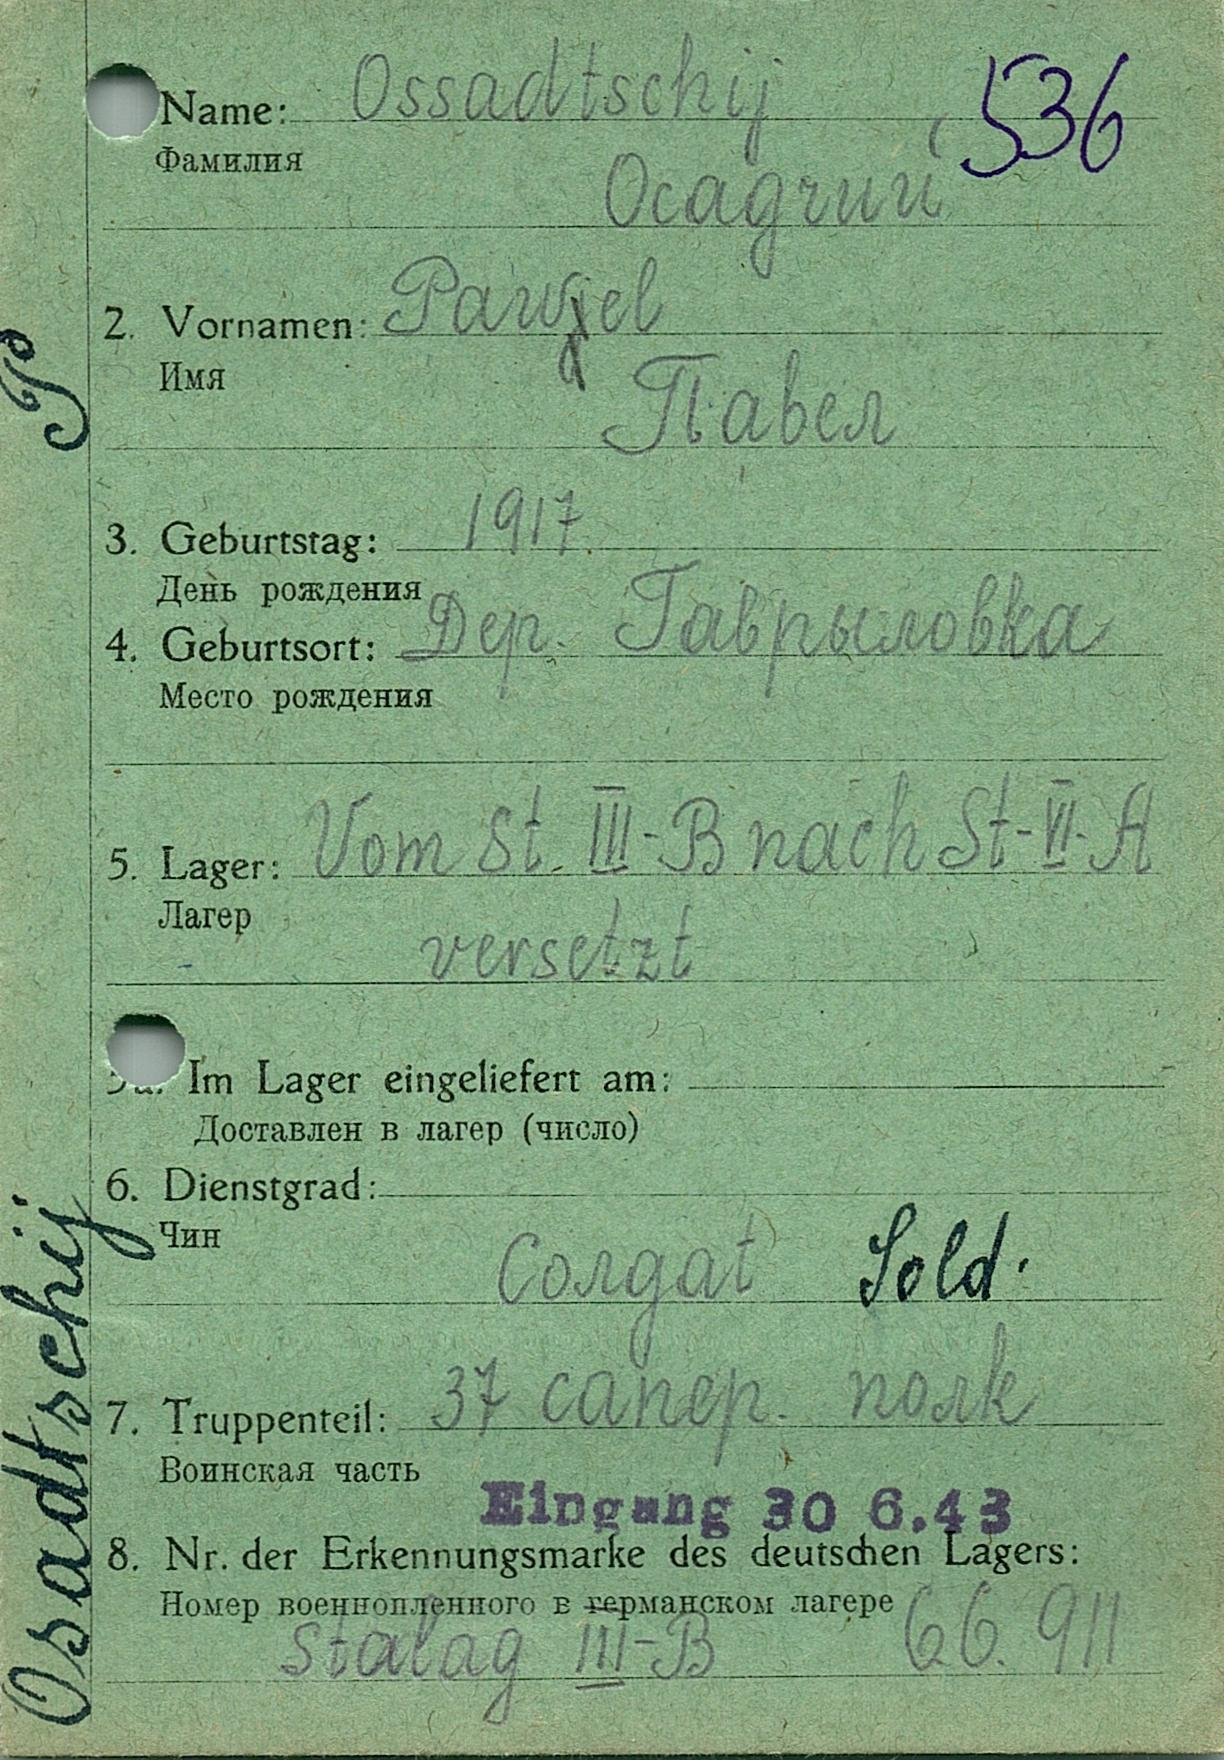 Name: Ossadtschij 536
Фамилия
Осадчий
2. Vornamen: Pawjel
Имя
Павел
3. Geburtstag: 1917
День рождения
4. Geburtsort: Дер. Гаврыловка
Место рождения
5. Lager: Vom St. III-B nach St-VI-A
Лагер
versetzt
Im Lager eingeliefert am:
Доставлен в лагер (число)
6. Dienstgrad:
Чин
Солдат Sold.
7. Truppenteil: 37 сапер. полк
Воинская часть
Eingang 30 6.43
8. Nr. der Erkennungsmarke des deutschen Lagers:
Номер военнопленного в германском лагере
Stalag III-B 66.911
Osadtschij P